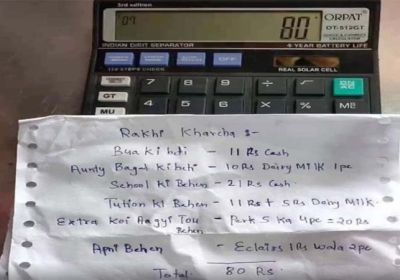 3rd edition
ORPAT
07
80
OT-512GT
INDIAN DIGIT SEPARATOR
5 YEAR BATTERY LIFE
REAL SOLAR CELL
OFF
GT
MU
7 8 9
4 5 6 ×
Rakhi Kharcha :-
Bua ki bti - 11 Rs Cash
Aunty Bagal ki bti - 10 Rs Dairy Milk 1pc
School ki Behen - 21 Rs Cash
Tution ki Behen - 11 Rs + 5 Rs Dairy Milk.
Extra Koi Aagyi Tou Behen - Perk 5 Ka 4pc = 20 Rs
Apni Behen - Eclairs 1Rs wala 2pc
Total: 80 Rs